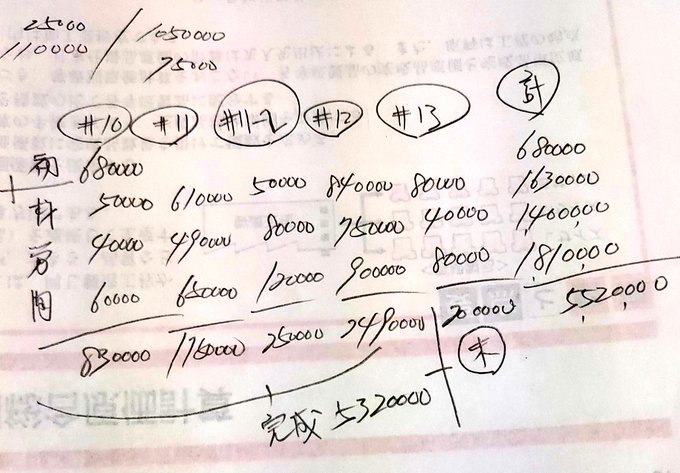 25000
110000 / 1050000
75000
#10 #11 #11-2 #12 #13 計
初 680000 680000
材 50000 610000 50000 840000 80000 1630000
労 40000 490000 80000 750000 40000 1400,000
間 60000 650000 120000 900000 80000 1,810,000
830000 1750000 250000 2490000 200000 5,520,000
未
完成 5320000